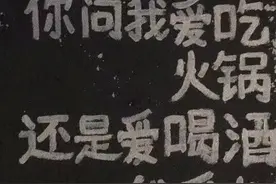 你问我爱吃
火锅
还是爱喝酒